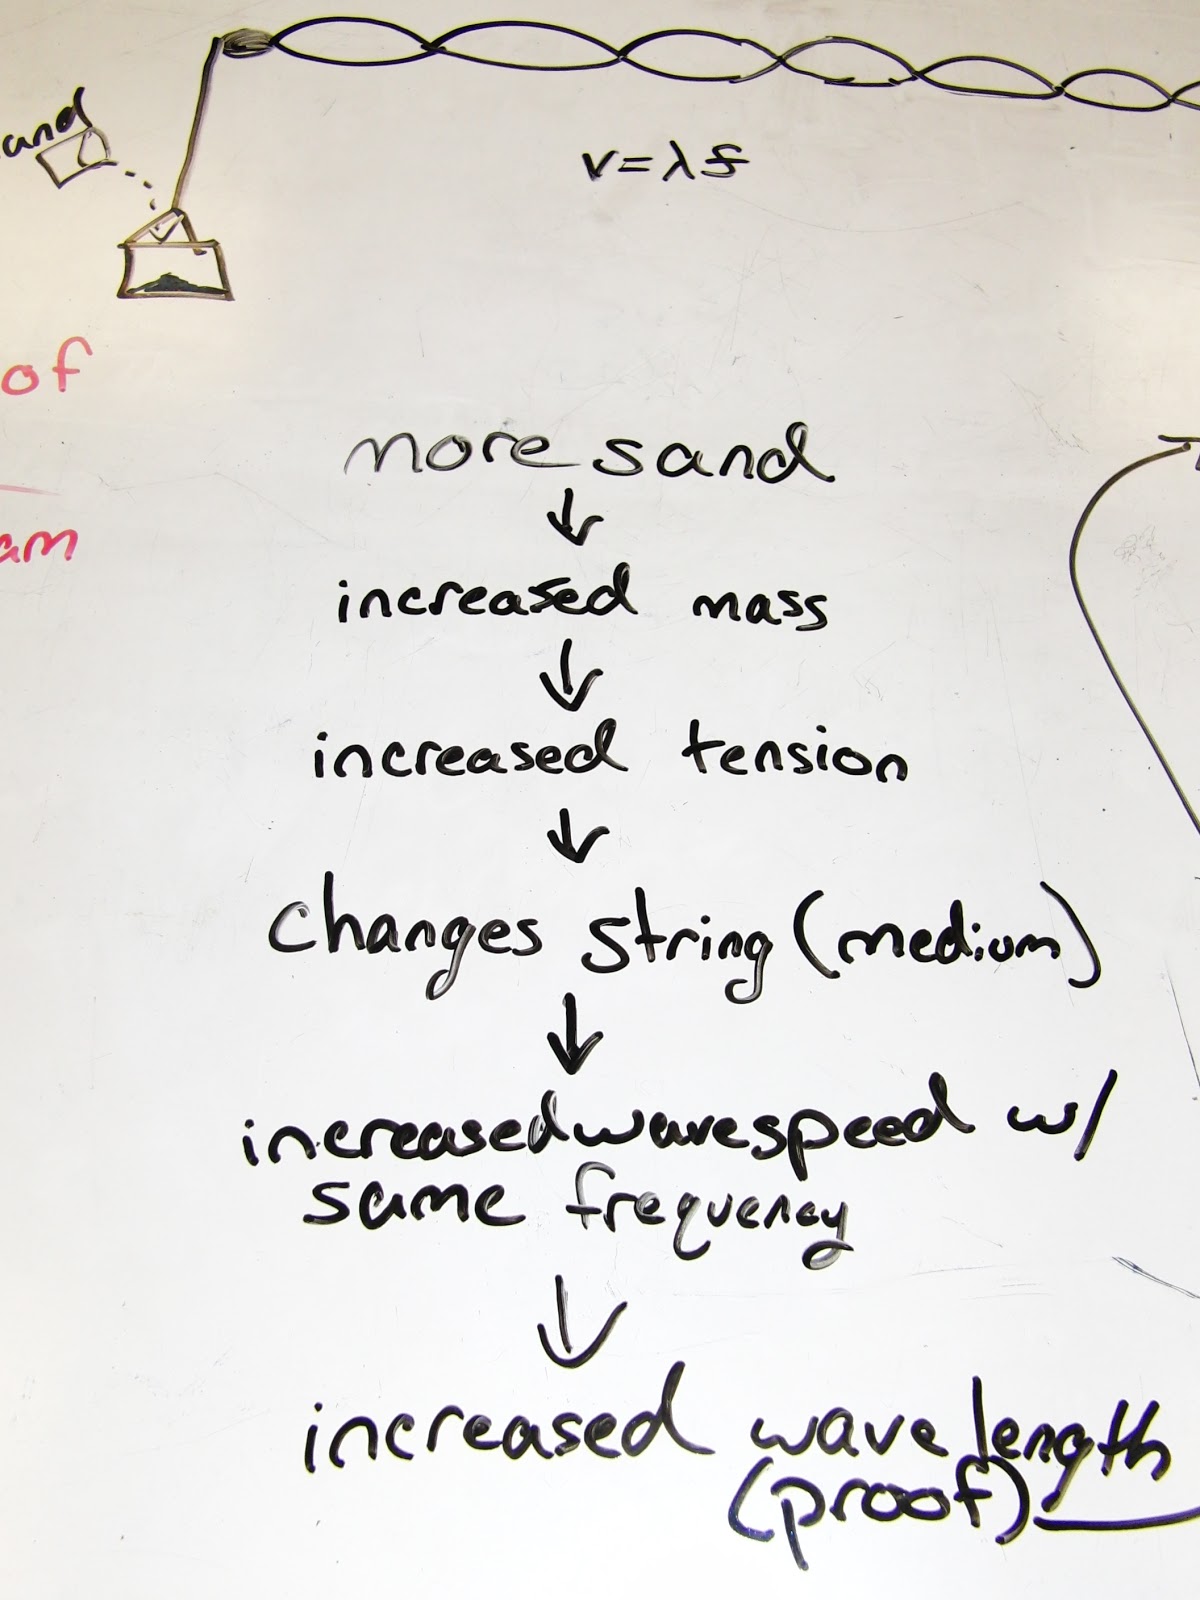 and
v=λf
of
am
more sand
↓
increased mass
↓
increased tension
↓
changes string (medium)
↓
increased wavespeed w/
same frequency
↓
increased wavelength
(proof)